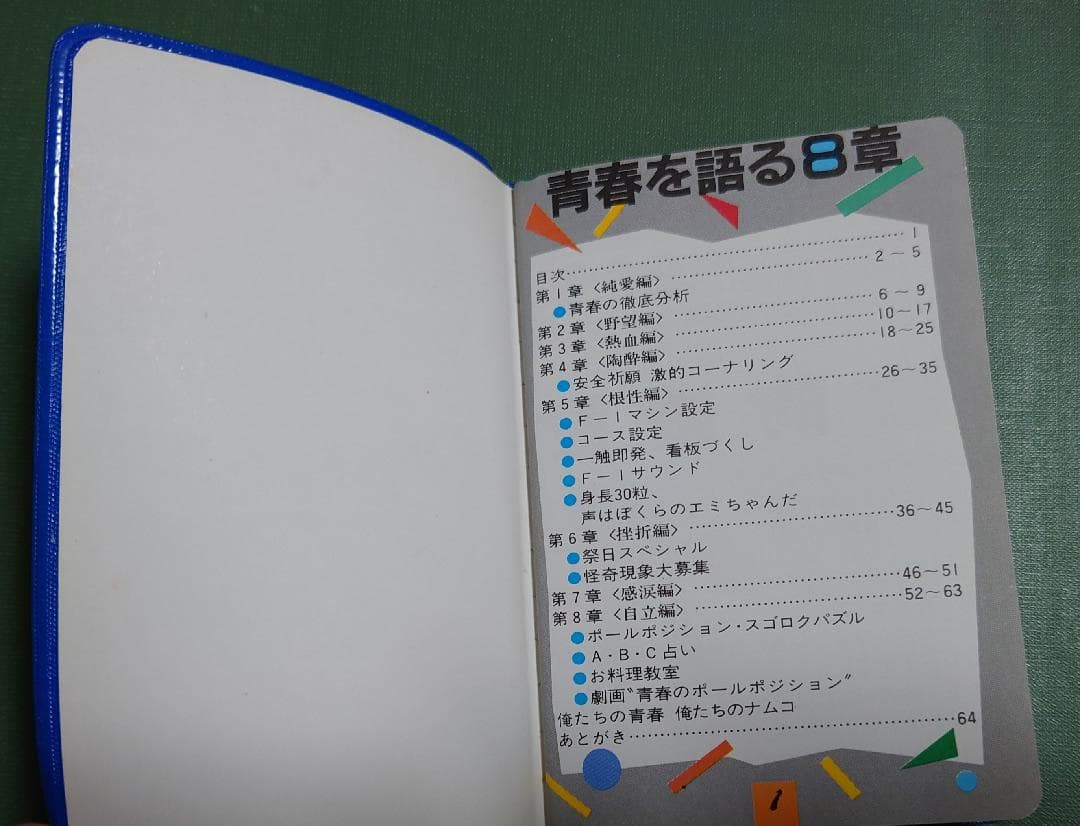 青春を語る8章
目次 1
第1章〈純愛編〉 2～5
●青春の徹底分析
第2章〈野望編〉 6～9
第3章〈熱血編〉 10～17
第4章〈陶酔編〉 18～25
●安全祈願 激的コーナリング
第5章〈根性編〉 26～35
●F－1マシン設定
●コース設定
●一触即発、看板づくし
●F－1サウンド
●身長30粒、
声はぼくらのエミちゃんだ
第6章〈挫折編〉 36～45
●祭日スペシャル
●怪奇現象大募集
第7章〈感涙編〉 46～51
第8章〈自立編〉 52～63
●ポールポジション・スゴロクパズル
●A・B・C占い
●お料理教室
●劇画〝青春のポールポジション〟
俺たちの青春 俺たちのナムコ
あとがき 64
1